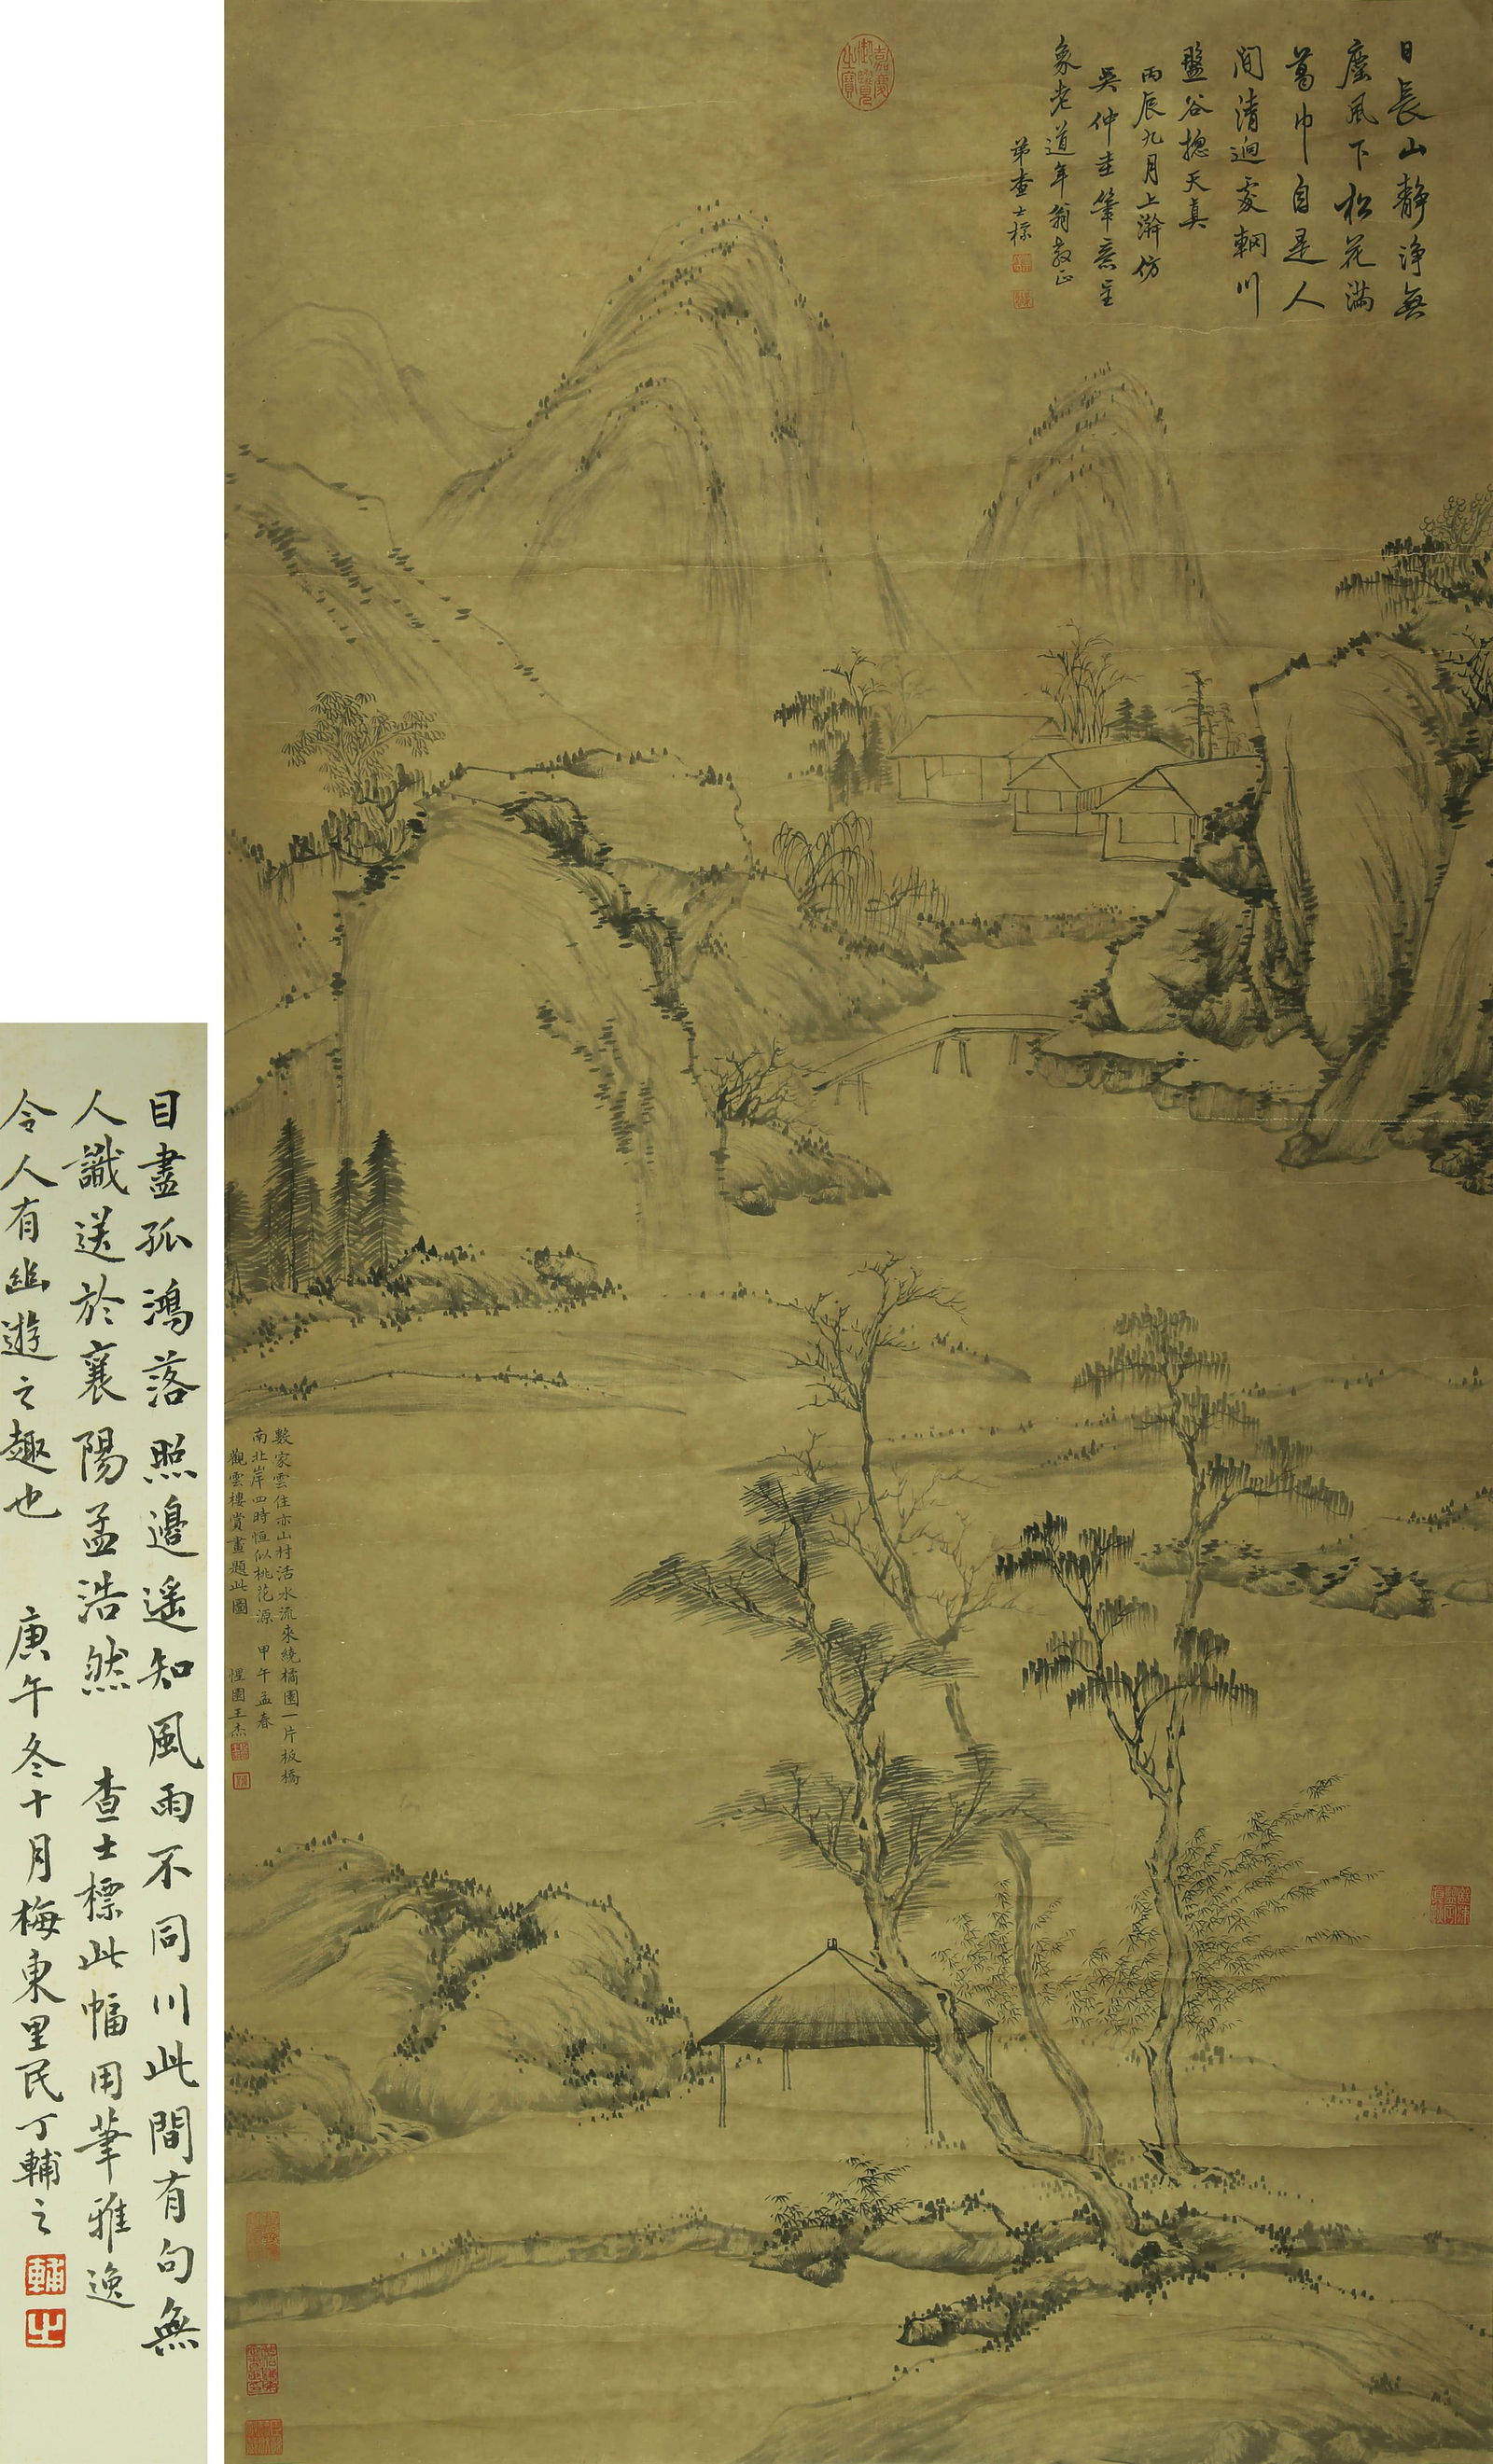 日長山靜淨無
塵風下松花滿
葛巾自是人
間清迥處輞川
盤谷揔天真
丙辰九月上澣仿
吳仲圭筆意呈
象老道年翁教正
弟查士標
嘉慶
御覽
之寶
數家雲住亦山村活水流來繞橘園一片板橋
南北岸四時恒似桃花源 甲午孟春
觀雲樓賞畫題此圖 惺園王杰
目盡孤鴻落照邊遙知風雨不同川此間有句無
人識送於襄陽孟浩然 查士標此幅用筆雅逸
令人有幽遊之趣也 庚午冬十月梅東里民丁輔之
輔
之